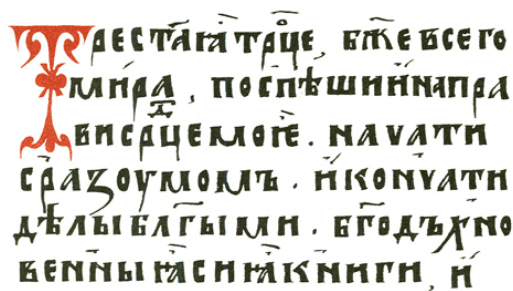 Трест҃аꙗ трⷪ҇це, бж҃е всего
мира, поспѣши и напра
ви срⷣце моѥ. начати
с разоумомъ. и кончати
дѣлы бл҃гыми. бг҃одъхно
венныꙗ сиꙗ книги, и